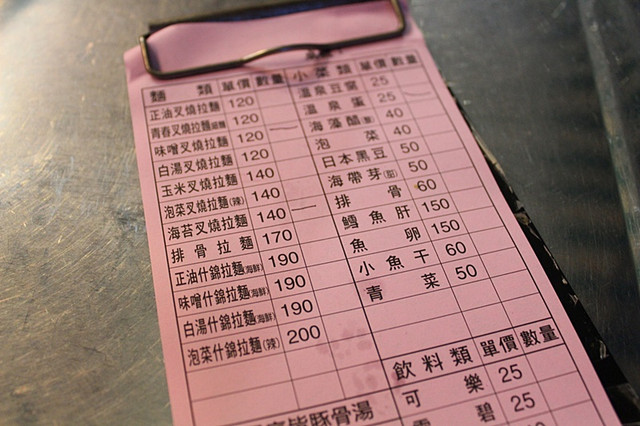 麵 類 單價 數量 小 菜 類 單價 數量
正油叉燒拉麵 120 溫泉豆腐 25
青春叉燒拉麵 120 溫泉蛋 25
味噌叉燒拉麵 120 海藻醋 40
白湯叉燒拉麵 120 泡菜 40
玉米叉燒拉麵 140 日本黑豆 50
泡菜叉燒拉麵(辣) 140 海帶芽 50
海苔叉燒拉麵 140 排骨 60
排骨拉麵 170 鱈魚肝 150
正油什錦拉麵(海鮮) 190 魚卵 150
味噌什錦拉麵(海鮮) 190 小魚干 60
白湯什錦拉麵(海鮮) 190 青菜 50
泡菜什錦拉麵(辣) 200
飲料類 單價 數量
可樂 25
雪碧 25
豚骨湯